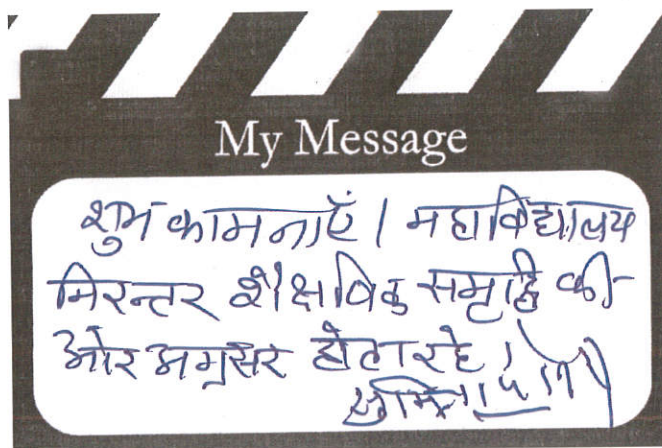 My Message
शुभ कामनाएँ। महाविद्यालय
निरन्तर शैक्षणिक समृद्धि की
ओर अग्रसर होता रहे।